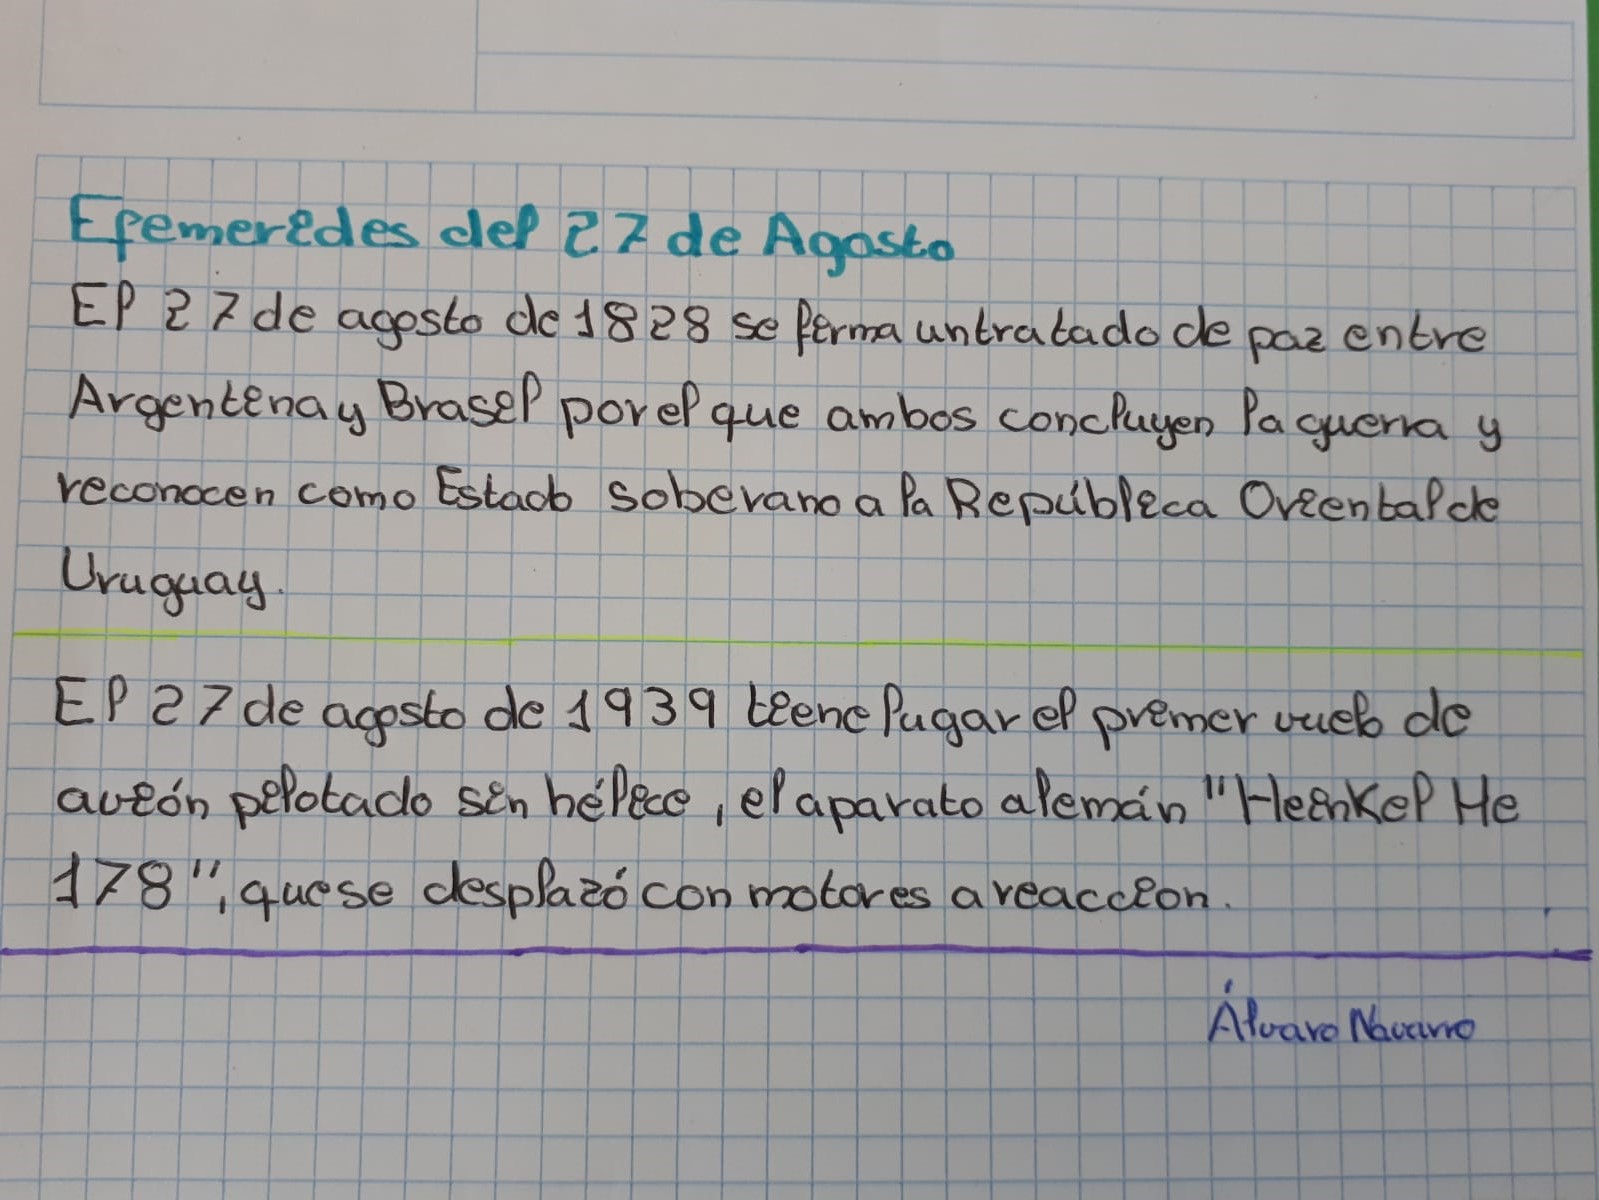 Efemerides del 27 de Agosto
El 27 de agosto de 1828 se firma un tratado de paz entre
Argentina y Brasil por el que ambos concluyen la guerra y
reconocen como Estado soberano a la República Oriental de
Uruguay.
El 27 de agosto de 1939 tiene lugar el primer vuelo de
avión pilotado sin hélice, el aparato alemán "Heinkel He
178", que se desplazó con motores a reaccion.
Álvaro Navarro